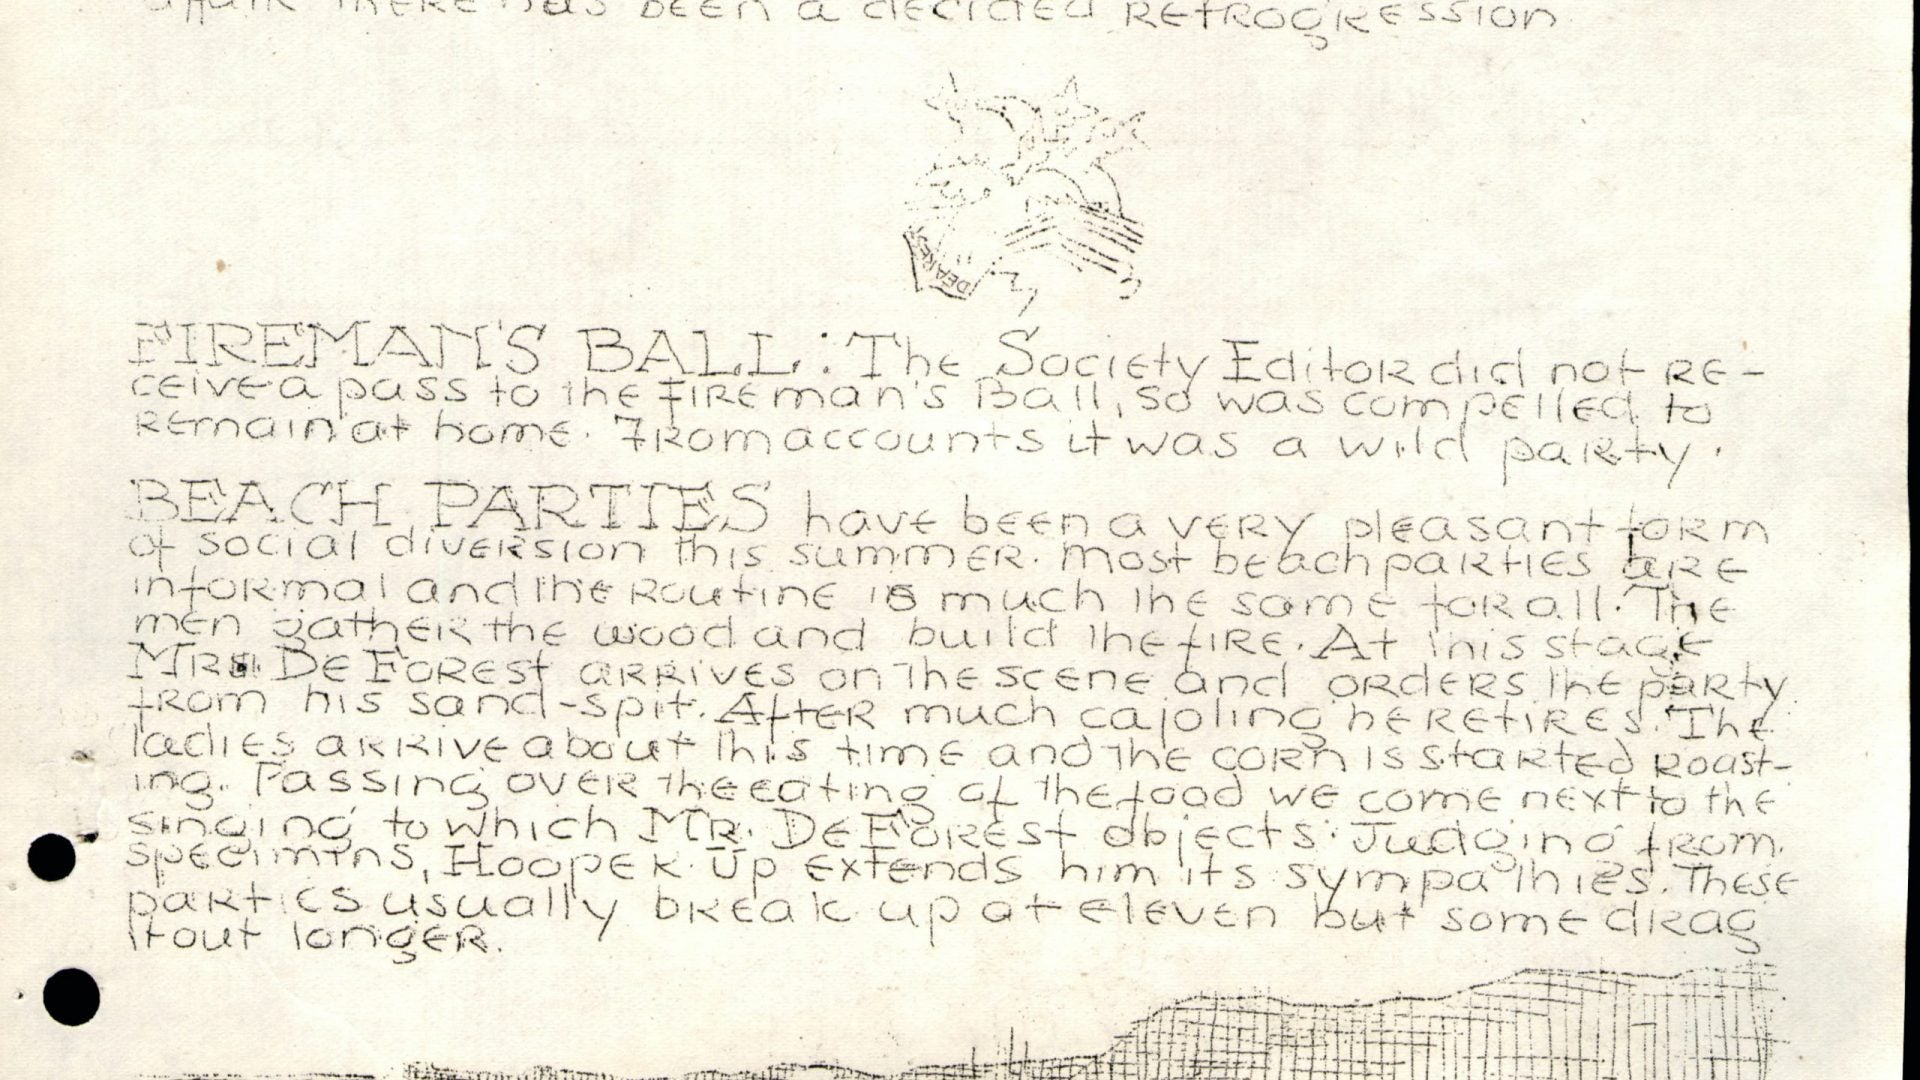 affair there has been a decided retrogression
DEAREST
FIREMAN'S BALL: The Society Editor did not re-
ceive a pass to the fireman's Ball, so was compelled to
remain at home. From accounts it was a wild party.
BEACH PARTIES have been a very pleasant form
of social diversion this summer. Most beach parties are
informal and the routine is much the same for all. The
men gather the wood and build the fire. At this stage
Mr. DeForest arrives on the scene and orders the party
from his sand-spit. After much cajoling he retires. The
ladies arrive about this time and the corn is started roast-
ing. Passing over the eating of the food we come next to the
singing to which Mr. DeForest objects. Judging from
specimens, Hooper-Up extends him its sympathies. These
parties usually break up at eleven but some drag
it out longer.